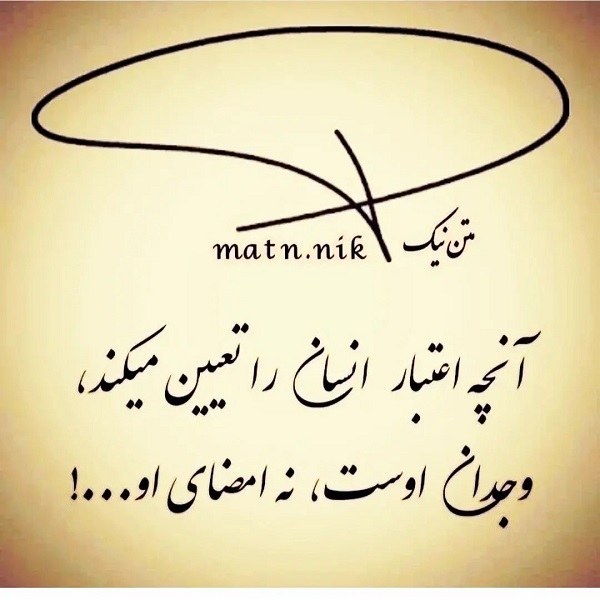 matn.nik متن نیک
آنچه اعتبار انسان را تعیین میکند،
وجدان اوست، نه امضای او...!